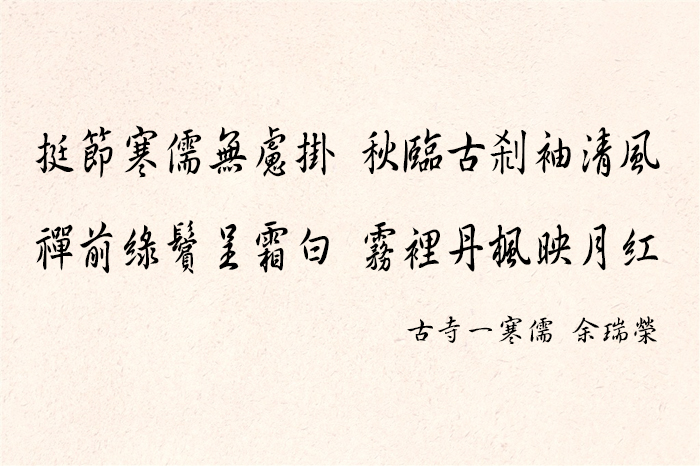 挺節寒儒無慮掛 秋臨古剎袖清風
禪前綠鬢呈霜白 霧裡丹楓映月紅
古寺一寒儒 余瑞榮